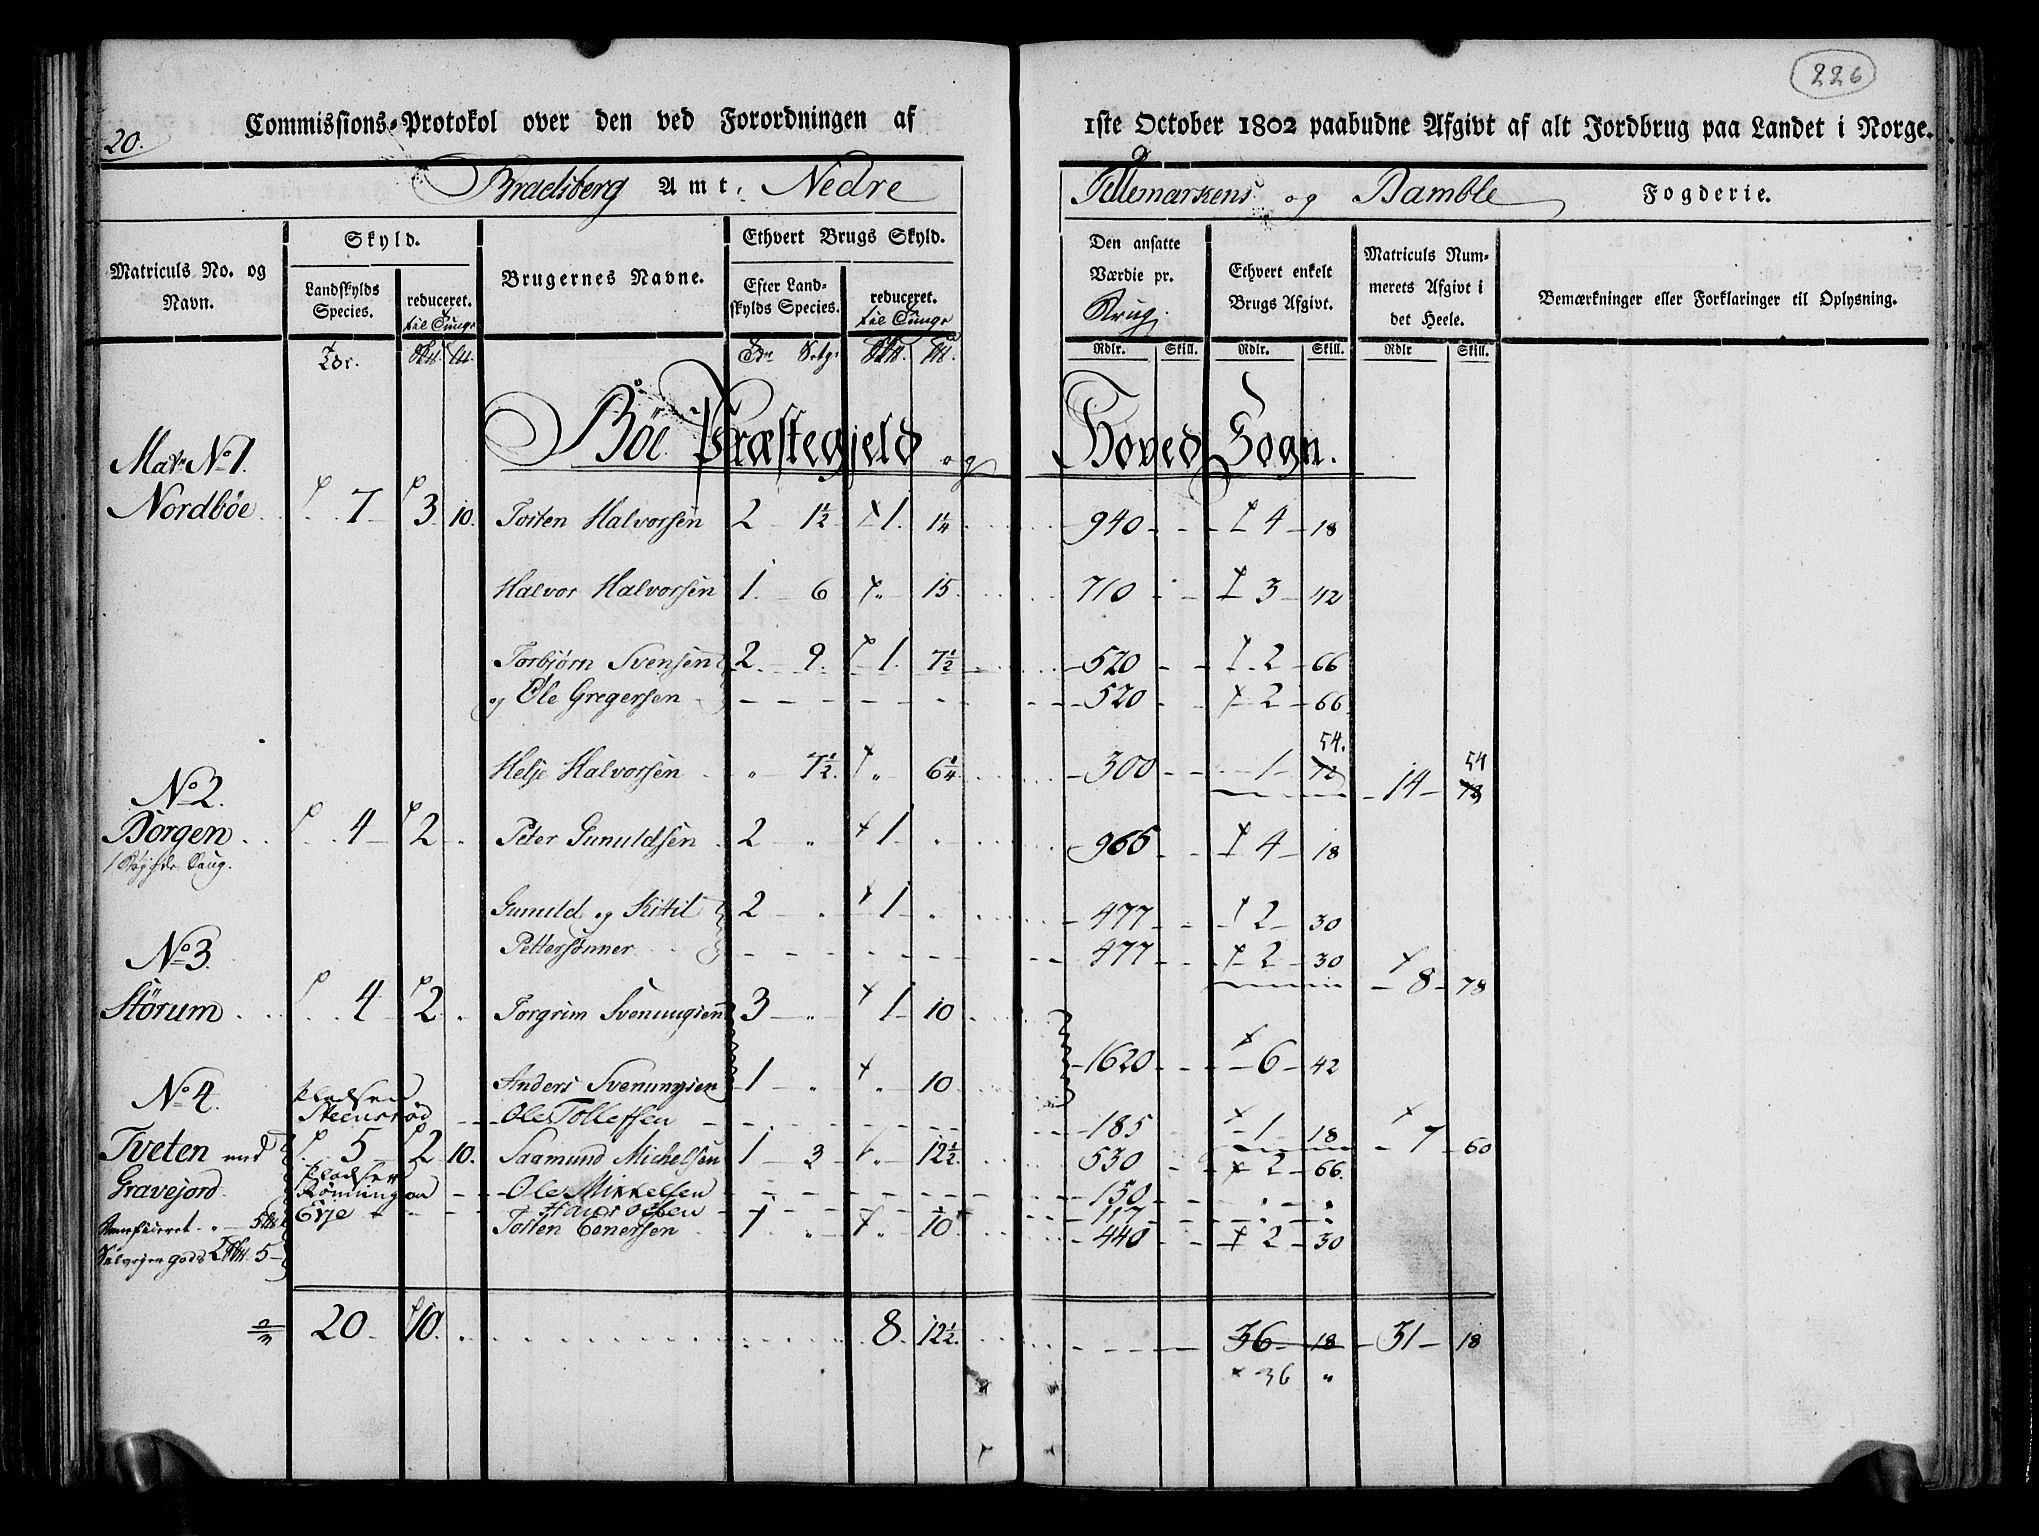 226
20.
Commissions-Protokol over den ved Forordningen af 1ste October 1802 paabudne Afgivt af alt Jordbrug paa Landet i Norge.
Bradsberg Amt, Nedre Tellemarkens og Bamble Fogderie.
Matriculs No. og Navn.
Skyld.
Landskylds Species.
reduceret. til Tunge
Brugernes Navne.
Ethvert Brugs Skyld.
Efter Landskylds Species.
reduceret. til Tunge
Den ansatte Værdie pr. Brug.
Ethvert enkelt Brugs Afgivt.
Matriculs Nummerets Afgivt i det Heele.
Bemærkninger eller Forklaringer til Oplysning.
Rdlr. Skill. Rdlr. Skill. Rdlr Skill.
Böe Præstegjeld og Hoved Sogn.
Mat. No 1.
Nordböe 7 3 10. Tosten Halvorsen 2 1½ 1. 1¼ 940 4 18
Halvor Halvorsen 1. 6 „ 15. 710 3 42
Torbjørn Svensen 2. 9. 1. 7½ 520 2 66
og Ole Gregersen 520 2 66
Helje Halvorsen „ 7½. „ 6¼ 300 1 72 54. 14 72 54
No 2.
Borgen 4 2 Peter Gunuldsen 2 „ 1. 965 4 18
Gunuld og Kittil 2 „ 1 477 2 30
Pettersønner 477 2 30 8 78
No 3.
Störum 4 2 Torgrim Svenungsen 3 „ 1 10
1620 6 42
Anders Svenungsen 1 „ „ 10
No 4. Pladsen Steensrød Ole Tollefsen 185 1 18 7 60
Tveten med 5 2 10. Saamund Michelsen 1 3 „ 12½ 530 2 66
Gravejord Pladsen Rönningen Ole Mikkelsen 150 „ „
Evje Hans Olsen 117 „ „
Tosten Enersen 1 „ 10 440 2 30
20 10. 8. 12½. 36 18 31 18
36 „